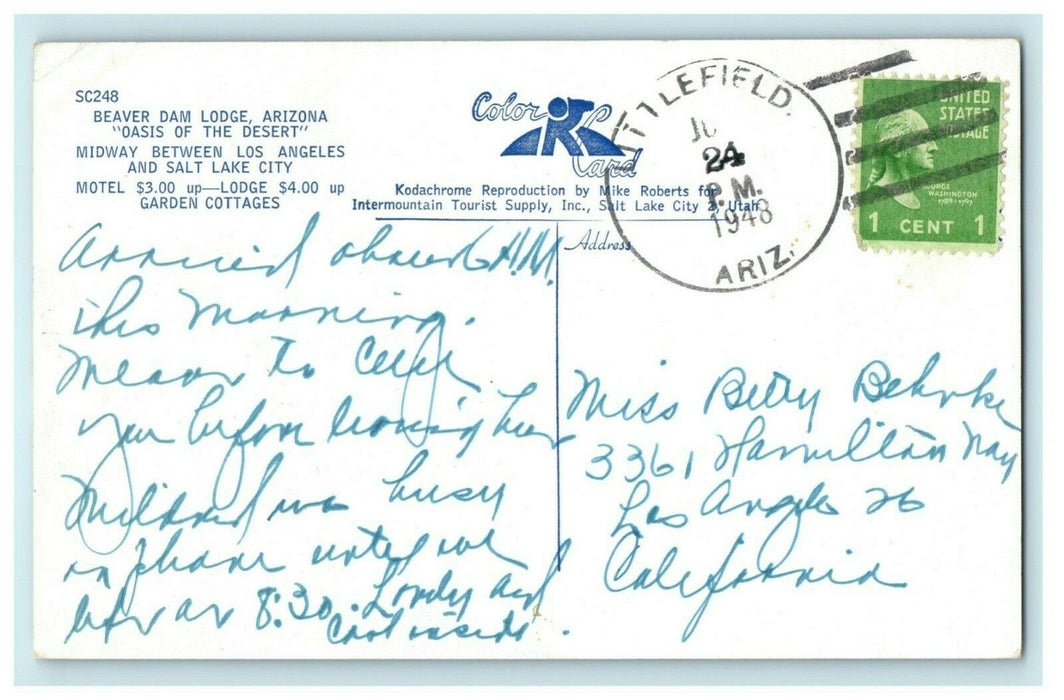 SC248
BEAVER DAM LODGE, ARIZONA
"OASIS OF THE DESERT"
MIDWAY BETWEEN LOS ANGELES
AND SALT LAKE CITY
MOTEL $3.00 up—LODGE $4.00 up
GARDEN COTTAGES
Color
Card
Kodachrome Reproduction by Mike Roberts for
Intermountain Tourist Supply, Inc., Salt Lake City 2, Utah
LITTLEFIELD,
24
P.M.
1948
ARIZ.
UNITED
STATES
POSTAGE
GEORGE
WASHINGTON
1789-1797
1 CENT 1
Arrived about 6 A.M.
this morning.
Meant to call
you before leaving but
Mildred was busy
on phone until we
left at 8:30. Lovely and
cool inside.
Address
Miss Betty Behnke
3361 Hamilton Way
Los Angeles 26
California